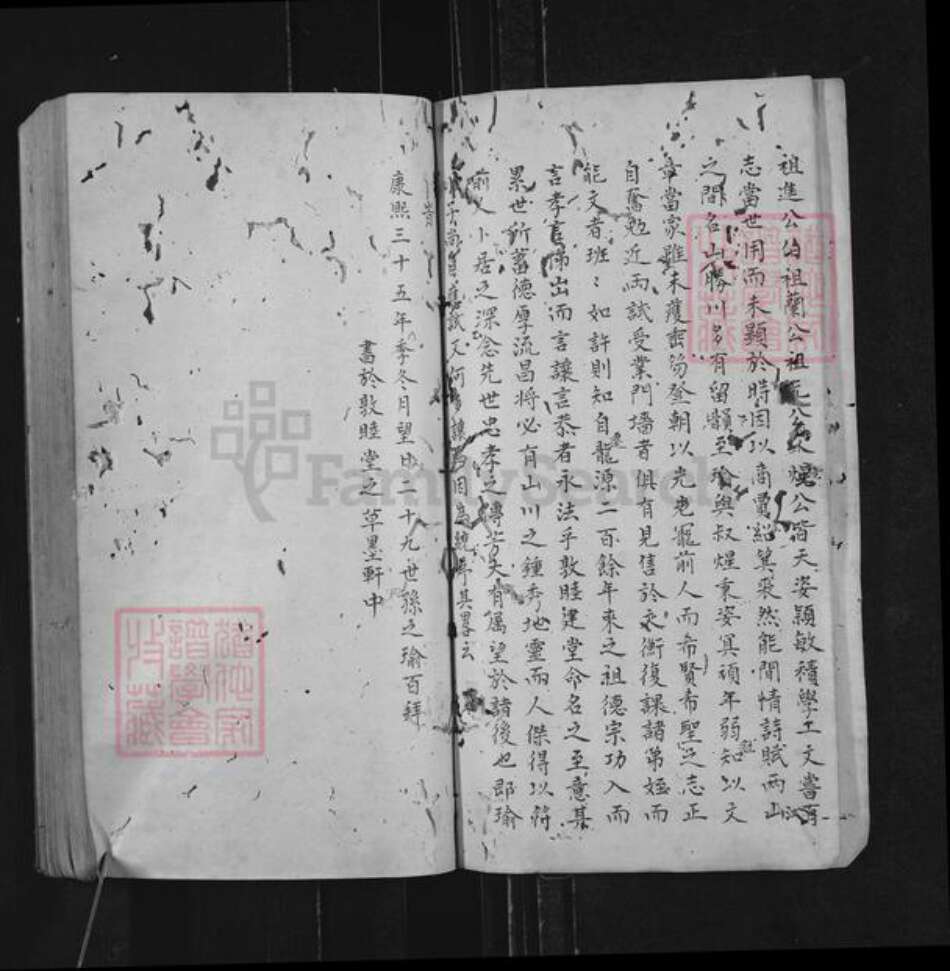 祖進公伯祖蘭公祖 公 煥公皆天姿穎敏積學工文嘗有
志當世用而未顯於時因以商賈紹箕裘然能閒情詩賦兩山
之間名山勝川多有留韻至瑜與叔煋秉姿冥頑年弱知以文
章當家雖未獲 登朝以光 寵前人而希賢希聖之志正
自奮勉近而試受業門墻者俱有見售於文衡復課諸弟姪而
能文者班：如許則知自龍源二百餘年來之祖德宗功入而
言孝言 出而言讓言恭者永法乎敦睦建堂命名之至意其
累世所蓄德厚流昌將必有山川之鍾秀地靈而人傑得以符
前人卜居之深念先世忠孝之傳 大有屬望於諸後也即瑜
又何 讓焉因為 其畧云
旹
康熙三十五年季冬月望日二十九世孫之瑜百拜
書於敦睦堂之草墨軒中
譜學會
收藏
FamilySearch